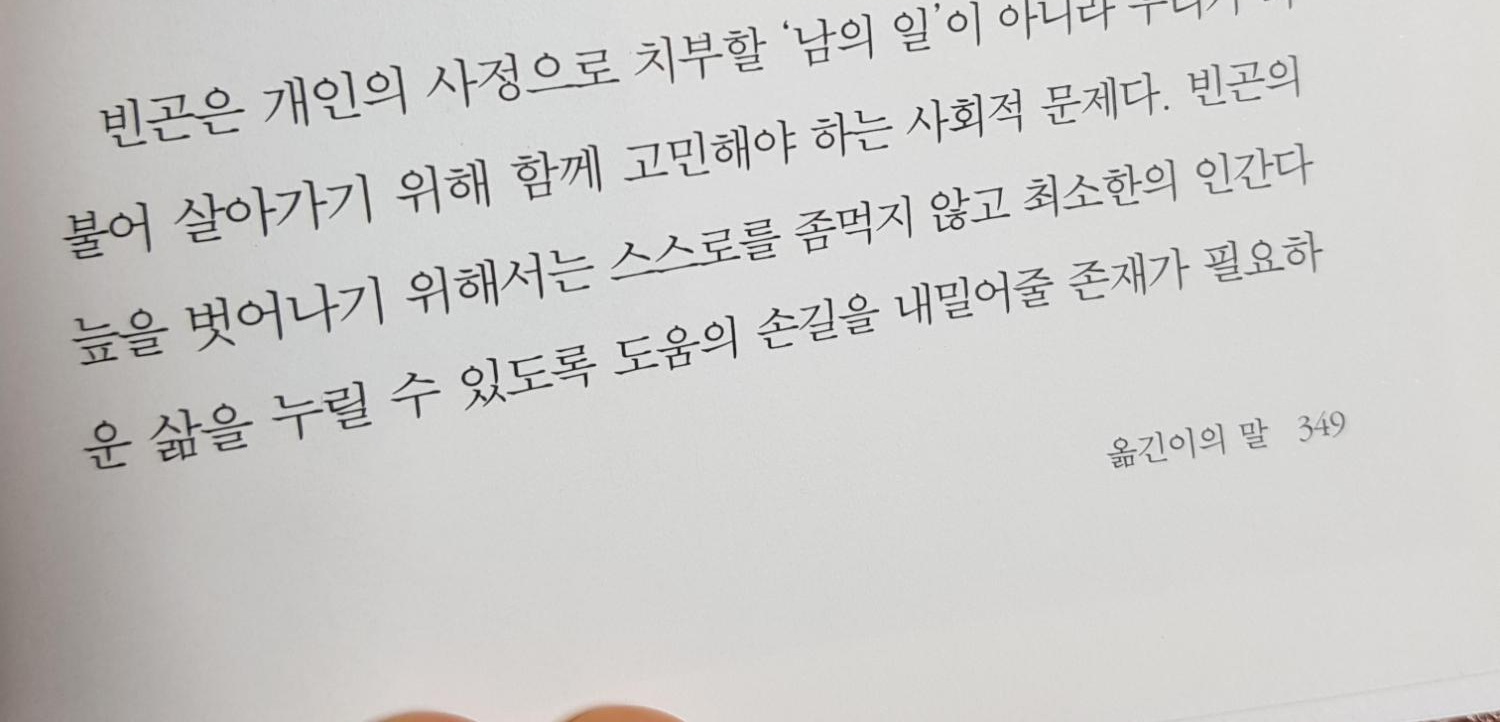 빈곤은 개인의 사정으로 치부할 ‘남의 일’이 아니라 우리가
불어 살아가기 위해 함께 고민해야 하는 사회적 문제다. 빈곤의
늪을 벗어나기 위해서는 스스로를 좀먹지 않고 최소한의 인간다
운 삶을 누릴 수 있도록 도움의 손길을 내밀어줄 존재가 필요하
옮긴이의 말 349